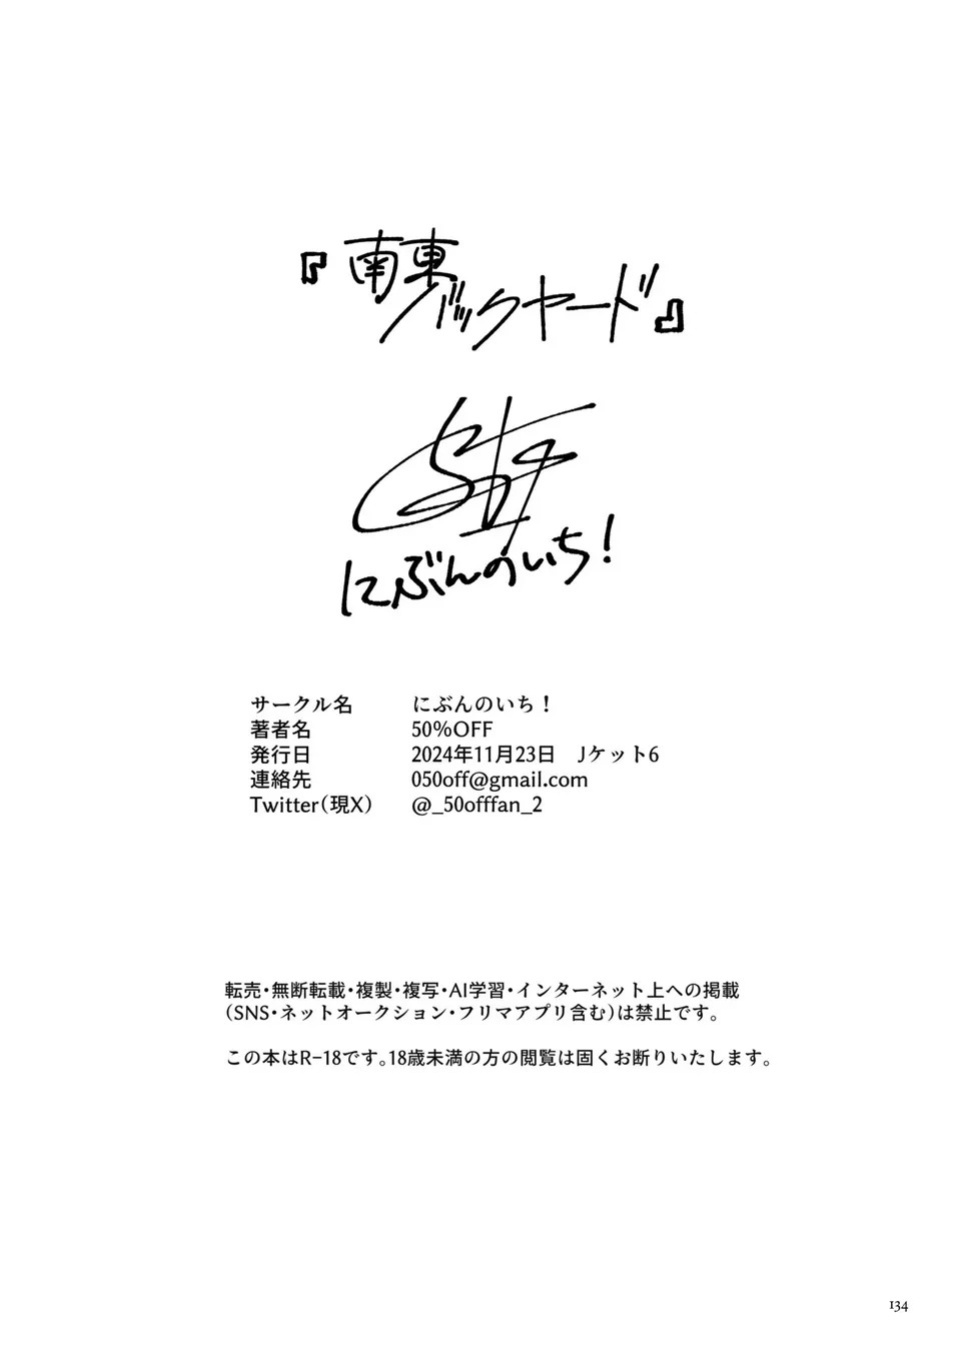 『南東
バックヤード』
にぶんのいち！
サークル名 にぶんのいち！
著者名 50%OFF
発行日 2024年11月23日 Jケット6
連絡先 050off@gmail.com
Twitter(現X) @_50offfan_2
転売・無断転載・複製・複写・AI学習・インターネット上への掲載
(SNS・ネットオークション・フリマアプリ含む)は禁止です。
この本はR-18です。18歳未満の方の閲覧は固くお断りいたします。
134